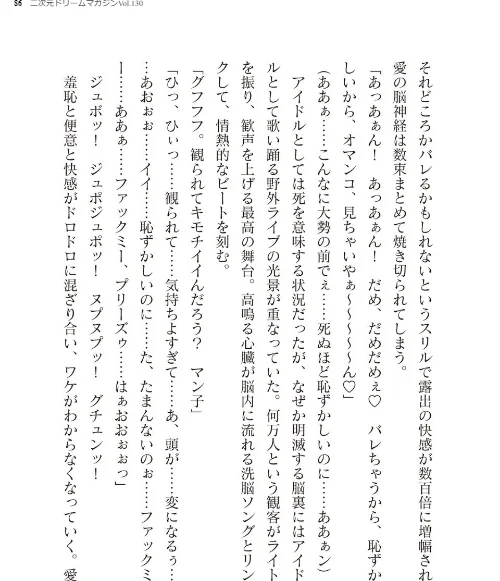 86 二次元ドリームマガジンVol.130
それどころかバレるかもしれないというスリルで露出の快感が数百倍に増幅され
愛の脳神経は数束まとめて焼き切られてしまう。
「あっあぁん！　あっあぁん！　だめ、だめだめぇ♡　バレちゃうから、恥ずか
しいから、オマンコ、見ちゃいやぁ～～～～～ん♡」
（ああぁ……こんなに大勢の前でぇ……死ぬほど恥ずかしいのに……ああぁン）
アイドルとしては死を意味する状況だったが、なぜか明滅する脳裏にはアイド
ルとして歌い踊る野外ライブの光景が重なっていた。何万人という観客がライト
を振り、歓声を上げる最高の舞台。高鳴る心臓が脳内に流れる洗脳ソングとリン
クして、情熱的なビートを刻む。
「グフフフ。観られてキモチイイんだろう？　マン子」
「ひっ、ひぃっ……観られて……気持ちよすぎて……あ、頭が……変になるぅ…
…あおぉぉ……イイ……恥ずかしいのに……た、たまんないのぉ……ファックミ
ー……ああぁ……ファックミー、プリーズゥ……はぁおおぉぉっ」
ジュボッ！　ジュポジュポッ！　ヌプヌプッ！　グチュンッ！
羞恥と便意と快感がドロドロに混ざり合い、ワケがわからなくなっていく。愛